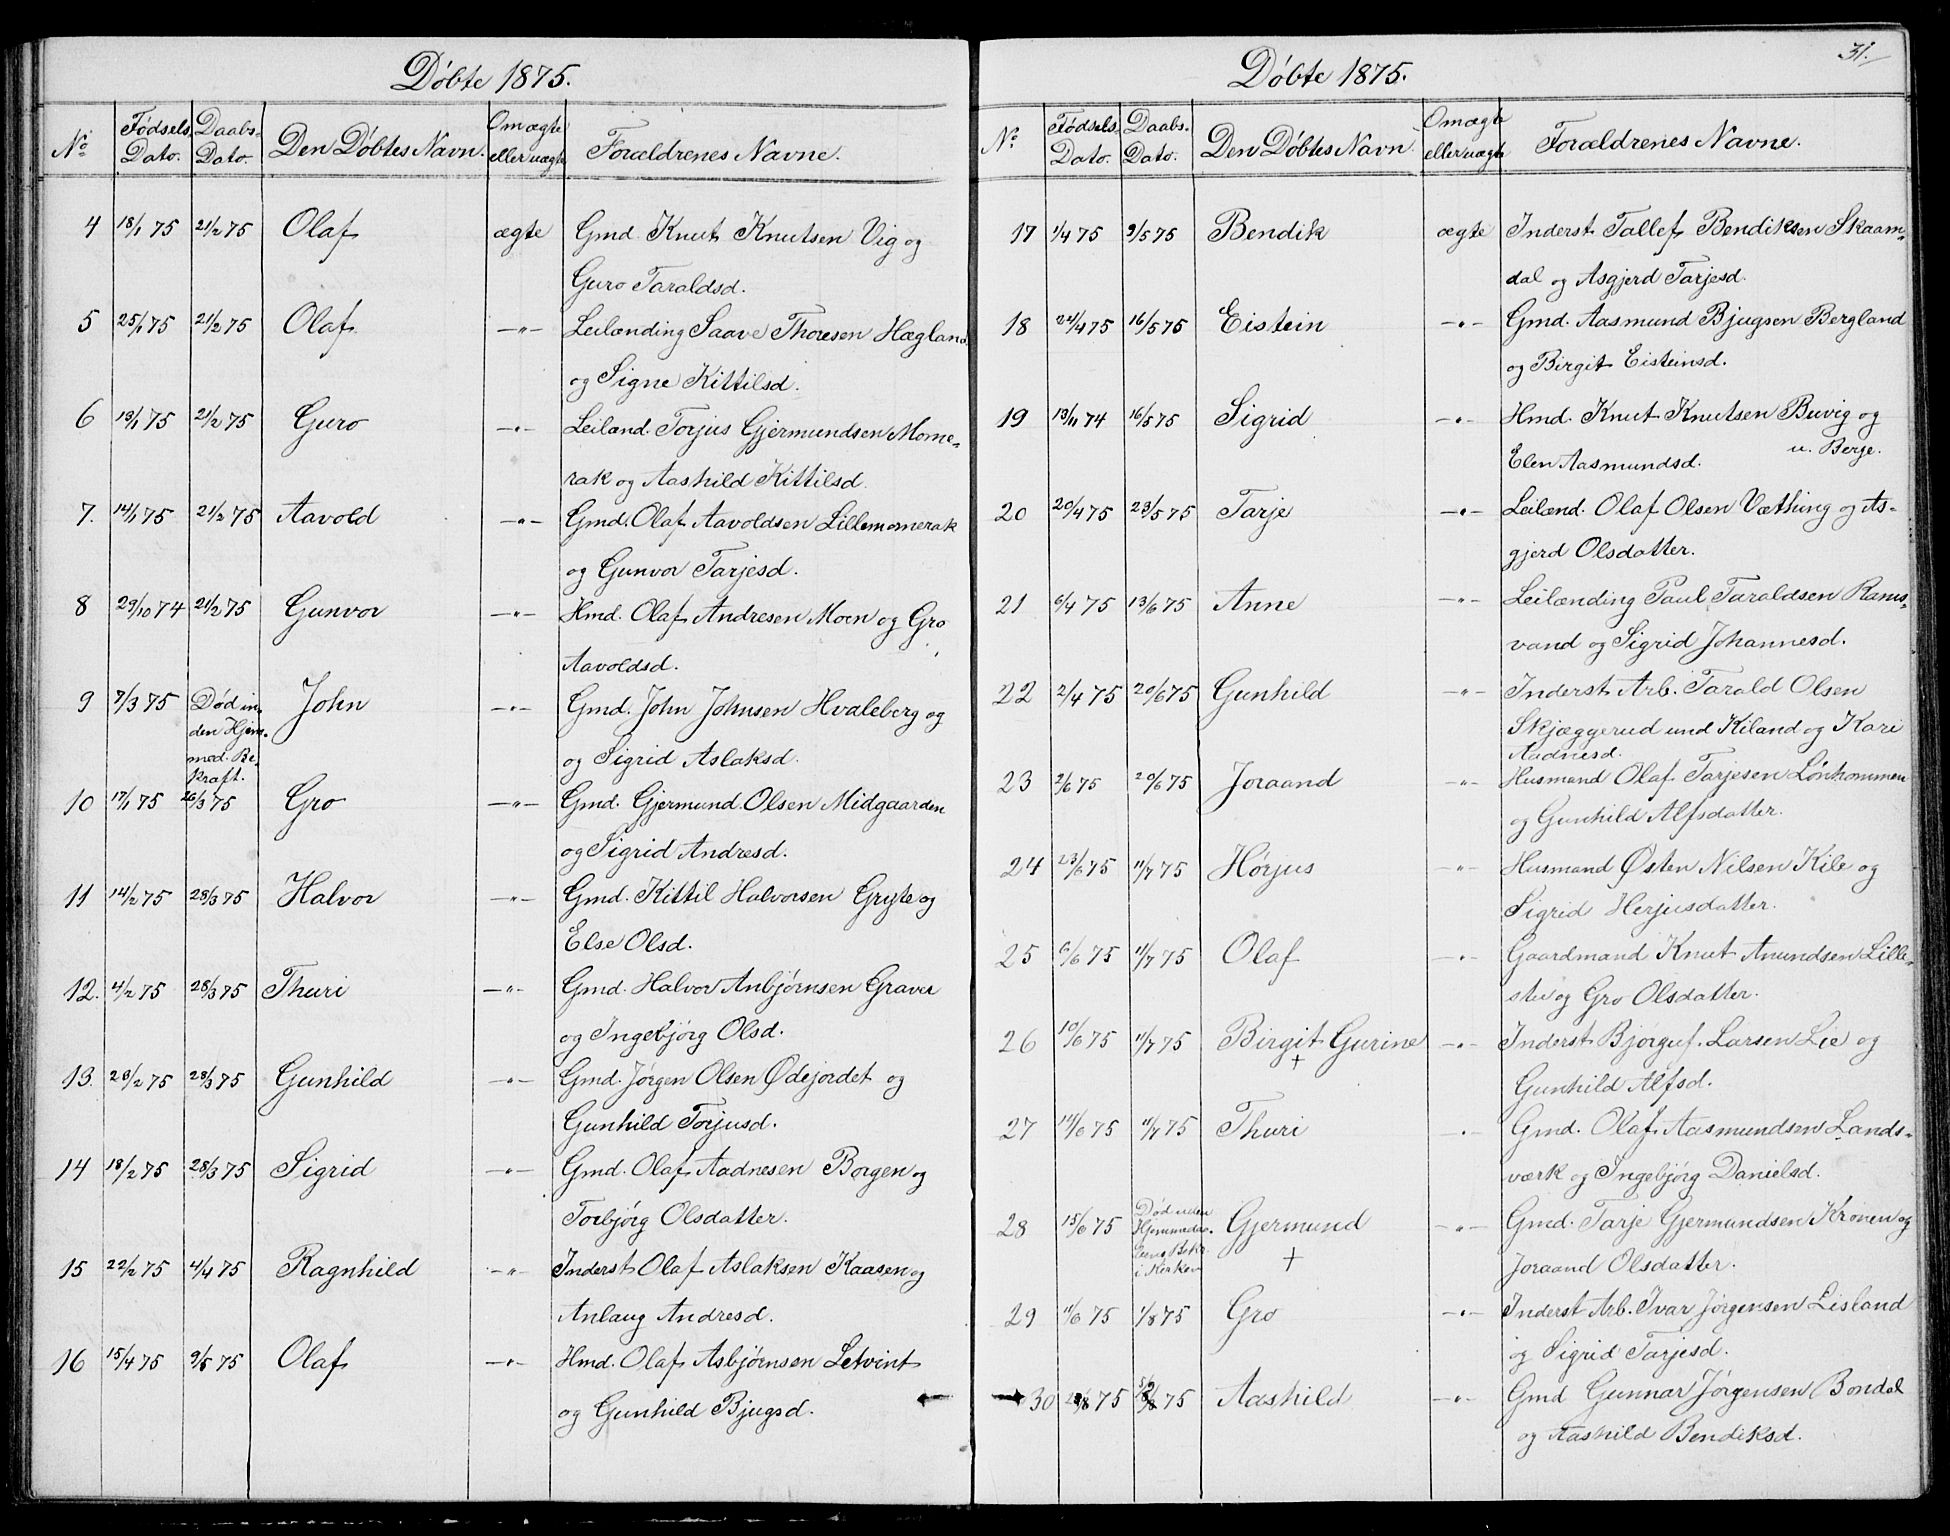 Døbte 1875.
No Fødsels Dato. Daabs- Dato. Den Døbtes Navn. Om ægte eller uægte Forældrenes Navne.
4 18/1 75 21/2 75 Olaf ægte Gmd. Knut Knutsen Vig og
Guro Taraldsd.
5 25/1 75 21/2 75 Olaf —"— Leilænding Saave Thoresen Hægland
og Signe Kittilsd.
6 19/1 75 21/2 75 Guro —"— Leilænd. Torjus Gjermundsen Mome-
rak og Aashild Kittilsd.
7. 14/1 75 21/2 75 Aavold —"— Gmd. Olaf Aavoldsen Lillemomerak
og Gunvor Tarjesd.
8 29/10 74 21/2 75 Gunvor —"— Hmd. Olaf Andresen Moen og Gro
Aavoldsd.
9 7/3 75 Død in- John —"— Gmd. John Johnsen Hvaleberg og
den Hjem-
med. Be- og Sigrid Aslaksd.
kraft.
10 17/1 75 26/3 75 Gro —"— Gmd. Gjermund Olsen Midgaarden
og Sigrid Andresd.
11 14/2 75 28/3 75 Halvor —"— Gmd. Kittil Halvorsen Gryte og
Else Olsd.
12. 4/2 75 28/3 75 Thuri —"— Gmd. Halvor Anbjørnsen Graver
og Ingebjørg Olsd.
13. 23/2 75 28/3 75 Gunhild —"— Gmd. Jørgen Olsen Ødejordet og
Gunhild Torjusd.
14 18/2 75 28/3 75 Sigrid —"— Gmd. Olaf Aadnesen Borgen og
Torbjørg Olsdatter.
15 22/2 75 4/4 75 Ragnhild —"— Inderst Olaf Aslaksen Kaasen og
Anlaug Andresd.
16 15/4 75 9/5 75 Olaf —"— Hmd. Olaf Asbjørnsen Letvint
og Gunhild Bjugsd.
31.
Døbte 1875.
No Fødsels Dato. Daabs- Dato. Den Døbtes Navn. Om ægte eller uægte Forældrenes Navne.
17 1/4 75 9/5 75 Bendik ægte Inderst Tallef Bendiksen Skaam-
dal og Asgjerd Tarjesd.
18 24/4 75 16/5 75 Eistein —"— Gmd. Aasmund Bjugsen Bergland
og Birgit Eisteinsd.
19 13/11 74 16/5 75 Sigrid —"— Hmd. Knut Knutsen Buvig og
u. Berge.
Elen Aasmundsd.
20 20/4 75 23/5 75 Tarje —"— Leilænd. Olaf Olsen Væthing og As-
gjerd Olsdatter.
21 6/4 75 13/6 75 Anne —"— Leilænding Paul Taraldsen Rams-
vand og Sigrid Johannesd.
22 2/4 75 20/6 75 Gunhild —"— Inderst Arb. Tarald Olsen
Skjæggerud und Kiland og Kari
Aadnesd.
23 2/6 75 20/6 75 Joraand —"— Husmand Olaf Tarjesen Lønkommen
og Gunhild Alfsdatter.
24 23/6 75 11/7 75 Hørjus —"— Husmand Østen Nilsen Kile og
Sigrid Herjusdatter.
25 6/6 75 11/7 75 Olaf —"— Gaardmand Knut Anundsen Lille-
stu og Gro Olsdatter.
26 10/6 75 11/7 75 Birgit Gurine —"— Inderst Bjørguf. Larsen Lie og
+
Gunhild Alfsd.
27 14/6 75 11/7 75 Thuri —"— Gmd. Olaf Aasmundsen Lands-
værk og Ingebjørg Danielsd.
28 15/6 75 Død uden Gjermund —"— Gmd. Tarje Gjermundsen Kronen og
i Kirken + Joraand Olsdatter.
29 11/6 75 1/8 75 Gro —"— Inderst Arb. Ivar Jørgensen Lisland
og Sigrid Tarjesd.
30 75 75 Aashild —"— Gmd Gunnar Jørgensen Bondal
og Aashild Bendiksd.